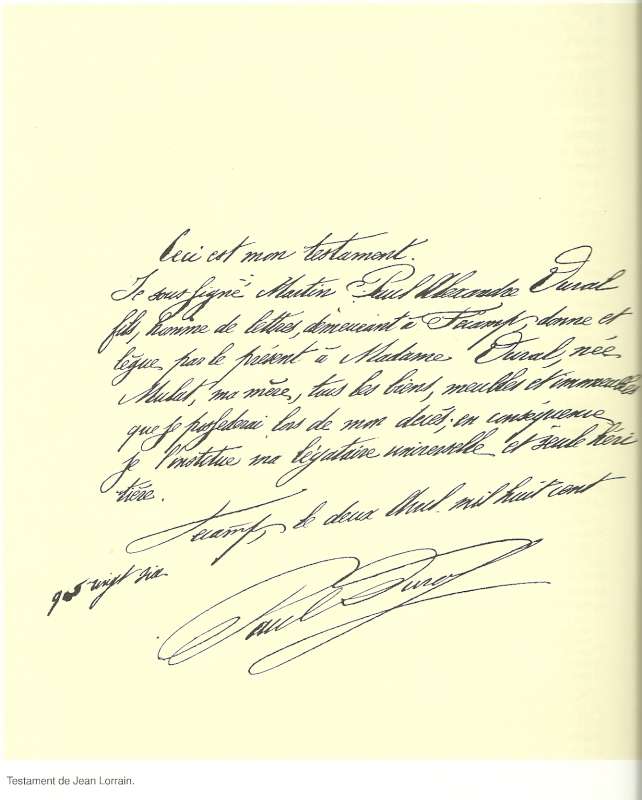 Ceci est mon testament.
Je soussigné Martin Paul Alexandre Duval
fils, homme de lettres, demeurant à Fécamp, donne et
lègue par le présent à Madame Duval, née
Mulat, ma mère, tous les biens, meubles et immeubles
que je possederai lors de mon decés; en conséquence
je l'institue ma légataire universelle et seule héri
tière.
Fecamp, le deux Avril mil huit cent
q vingt
Paul Duval
Testament de Jean Lorrain.